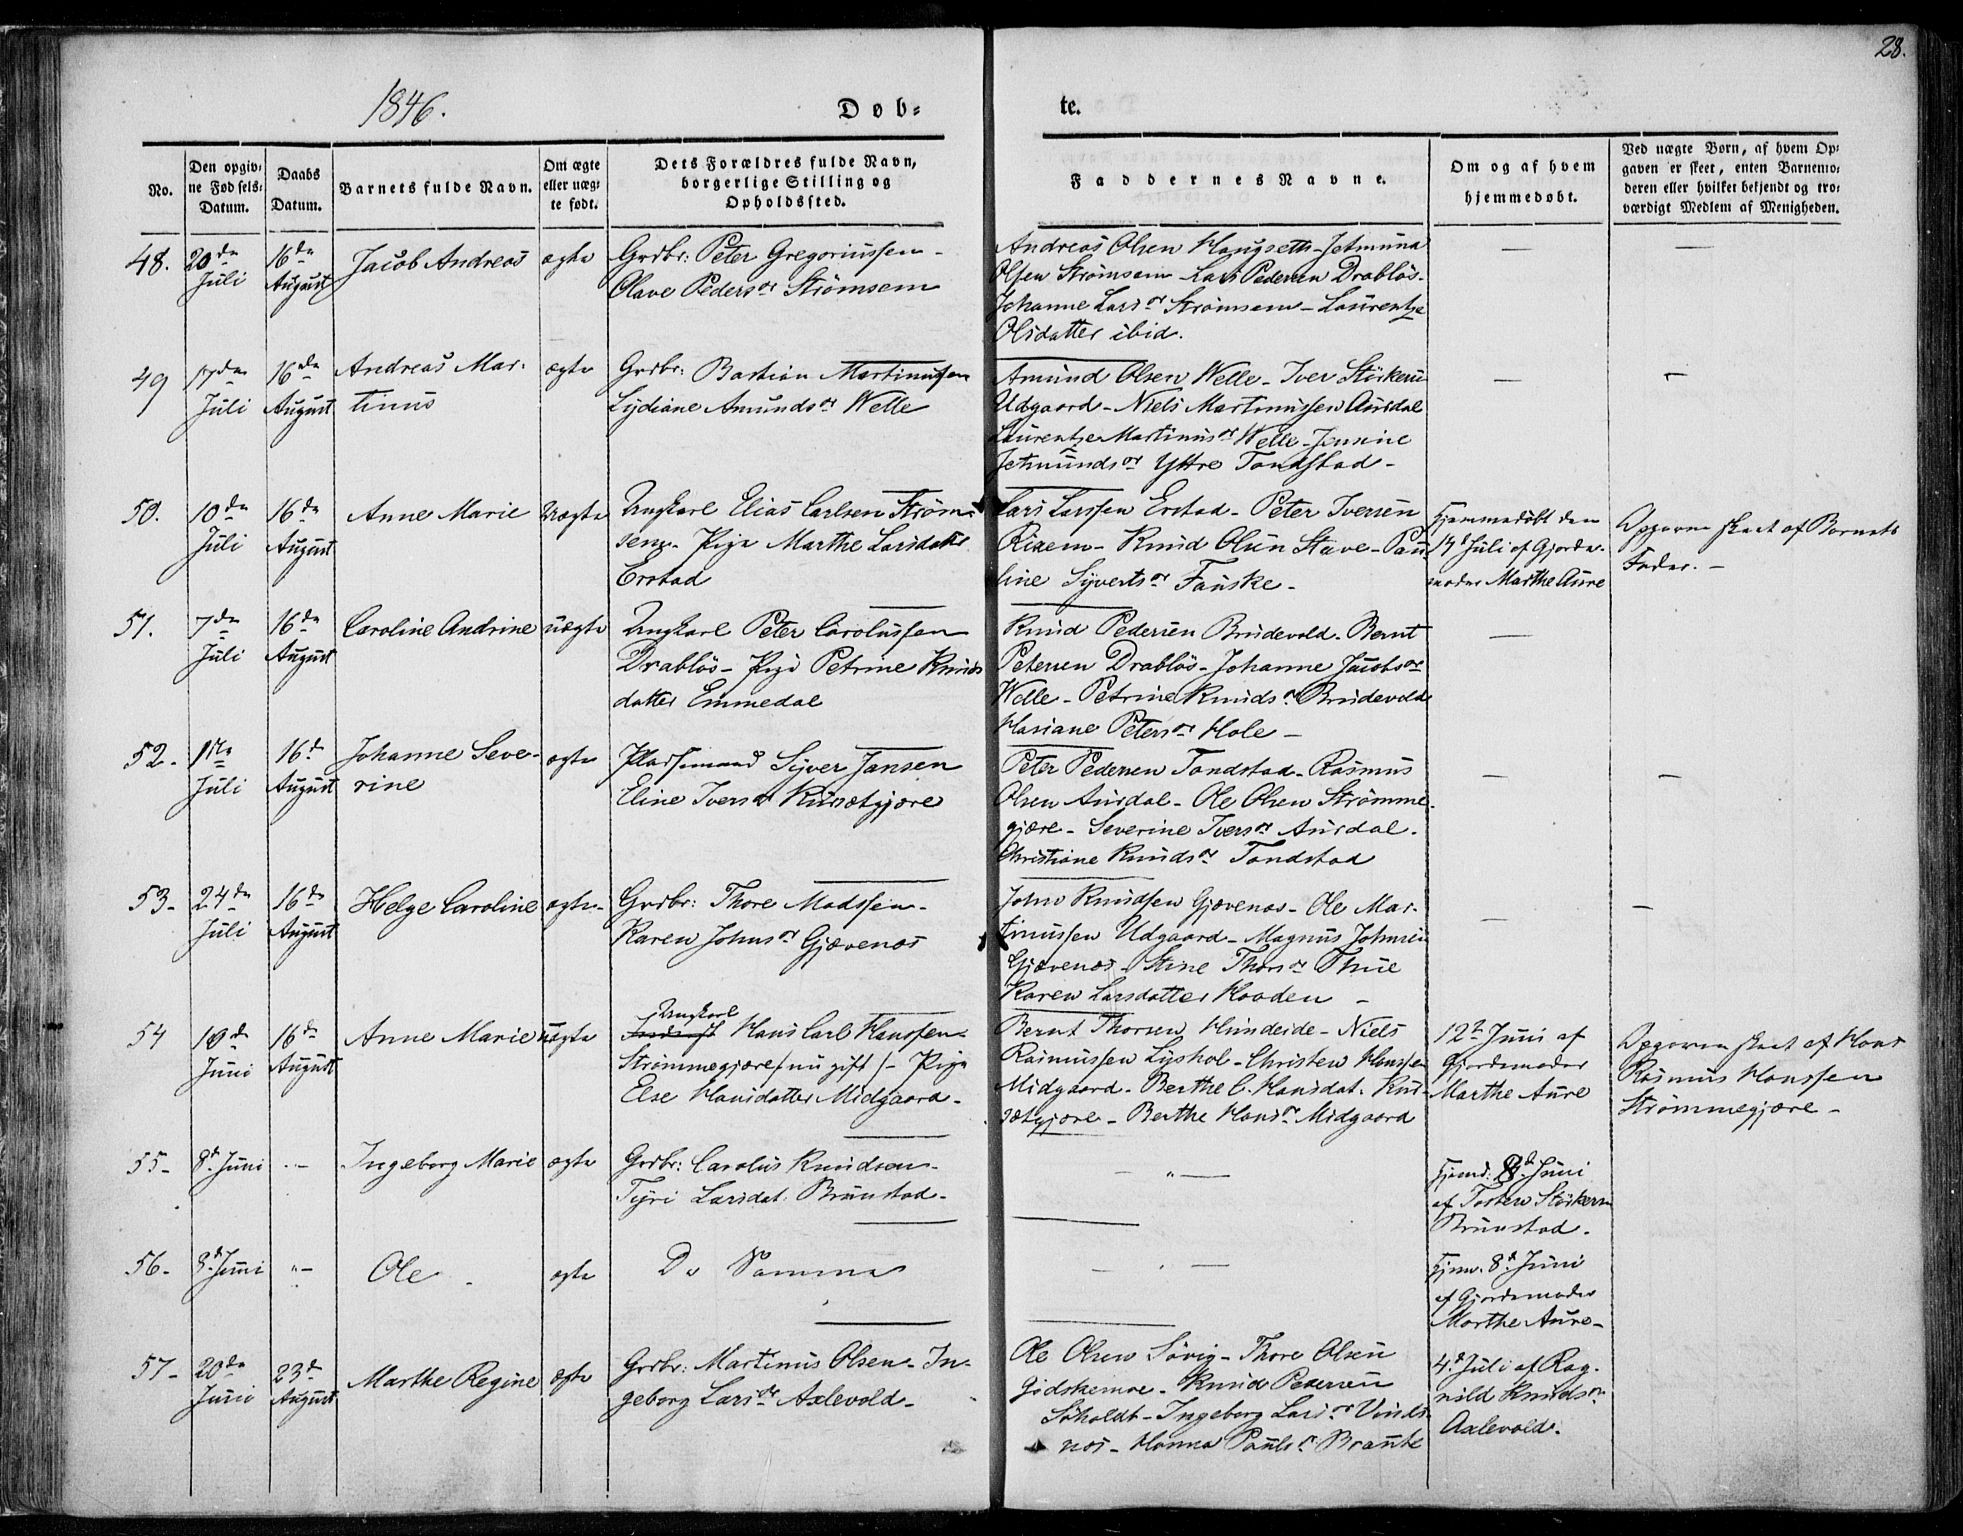 28.
1846.
Døb=
te.
No.
Den opgiv=
ne Fødsels=
Datum.
Daabs
Datum.
Barnets fulde Navn.
Om ægte
eller uæg=
te født.
Dets Forældres fulde Navn,
borgerlige Stilling og
Opholdssted.
Faddernes Navne.
Om og af hvem
hjemmedøbt.
Ved uægte Børn, af hvem Op=
gaven er skeet, enten Barnemo=
deren eller hvilket bekjendt og tro=
værdigt Medlem af Menigheden.
48.
20de
Juli
16de
August
Jacob Andreas
ægte
Grdbr: Peter Gregoriussen -
Olave Pedersdr Strømsem
Andreas Olsen Haugseth - Jetmund
Olsen Strømsem - Lars Pedersen Drabløs -
Johanne Larsdr Strømsem - Laurentze
Olsdatter ibid.
—
—
49
17de
Juli
16de
August
Andreas Mar-
tinus
ægte
Grdbr: Bastian Martinussen
Lydiane Amundsdr Welle
Amund Olsen Welle - Iver Störkersen
Udgaard - Niels Martinussen Aursdal
Laurentze Martinusdr Welle - Jensine
Jetmundsdr Yttre Tandstad -
—
—
50.
10de
Juli
16de
August
Anne Marie
Uægte
Ungkarl Elias Carlsen Strøm-
sem - Pige Marthe Larsdatter
Erstad
Lars Larssen Erstad - Peter Iversen
Rixem - Knud Olsen Stave - Pau-
line Syvertsdr Fauske -
Hjemmedøbt den
Juli af Gjorde-
moder Marthe Aure
Opgaven skeet af Barnets
Fader. -
51.
7de
Juli
16de
August
Caroline Andrine
uægte
Ungkarl Peter Carolussen
Drabløs - Pige Petrine Knuds
datter Emmedal
Knud Pedersen Brudevold - Bernt
Petersen Drabløs - Johanne Jacobsdr
Welle - Petrine Knudsdr Brudevold
Hansiane Petersdr Hole -
—
52 -
1ste
Juli
16d
August
Johanne Seve-
rine
ægte
Pladsemand Syver Jansen
Eline Iversdr Kursetgjære
Peter Pedersen Tandstad - Rasmus
Olsen Aursdal - Ole Olsen Strømme-
gjære - Severine Iversdr Aursdal -
Christiane Knudsdr Tandstad
—
—
53 -
24de
Juli
16de
August
Helge Caroline
ægte -
Grdbr: Thore Madssen -
Karen Johnsdr Gjævenæs
John Knudsen Gjævenæs - Ole Mar-
tinussen Udgaard - Magnus Johnsen
Gjævenæs - Stine Thorsdr Thue
Karen Larsdatter Haaden -
—
—
54
10de
Juni
16de
August
Anne Marie
uægte
Ungkarl
Hans Carl Hanssen -
Strømmegjære /: nu gift :/ - Pige
Else Hansdatter Midgaard -
Bernt Thorsen Hundeide - Niels
Rasmussen Lyshol - Christen Hanssen
Midgaard - Berthe C. Hansdat. Kur-
sætgjære - Berthe Hansdr Midgaard
12te Juni af
Gjordemoder
Marthe Aure
Opgaven skeet af Hans
Rasmus Hanssen
Strømmegjære -
55 -
8d Juni
" -
Ingeborg Marie
ægte
Grdbr: Carolus Knudsen -
Tyri Larsdat. Brunstad -
— " —
Hjemd: 8d Juni
af Tosten Störkersen
Brunstad.
56 -
8d Juni
" -
Ole
ægte
Do Samme
— " —
Hjem. 8d Juni
af Gjordemoder
Marthe Aure -
57 -
20de
Juni
23d
August
Marthe Regine
ægte
Grdbr: Martinus Olsen - In-
geborg Larsdr Axlevold -
Ole Olsen Søvig - Thore Olsen
Gidskemoe - Knud Pedersen
Søholdt - Ingeborg Larsdr Vinds-
næs - Hanna Paulsdr Braute
4d Juli af Rag-
nild Knudsdr
Axlevold.